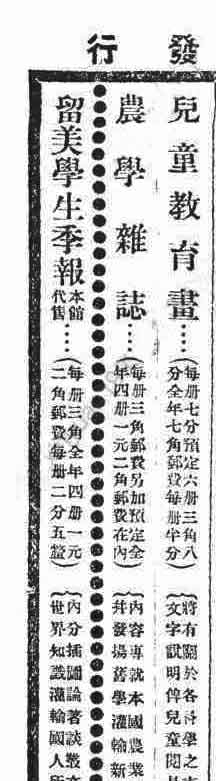 發行
兒童教育畫……
每册七分預定六册三角八
分全年七角郵費每册半分
將有關於各科學之
文字說明俾兒童閱
農學雜誌……
每册三角郵費另加預定全
年四册一元二角郵費在內
內容專就本國農業
幷發揚舊學灌輸新
留美學生季報
本館
代售
……
每册三角全年四册一元
二角郵費每册二分五釐
內分插圖論著談叢
世界知識灌輸國人